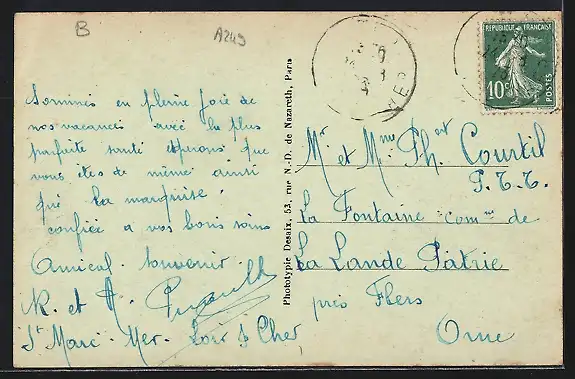 B
A249
Sommes en pleine joie de
nos vacances avec la plus
parfaite santé espérons que
vous êtes de même ainsi
que la marquise
confiée a vos bons soins
Amical souvenir
R. et A.
St Marc-Mer. Loir & Cher
Phototypie Desaix, 53, rue N.-D. de Nazareth, Paris
REPUBLIQUE FRANÇAISE
10c
POSTES
MER
Mr et Mme Ph. Courtil
P.T.T.
La Fontaine comne de
La Lande Patrie
près Flers
Orne